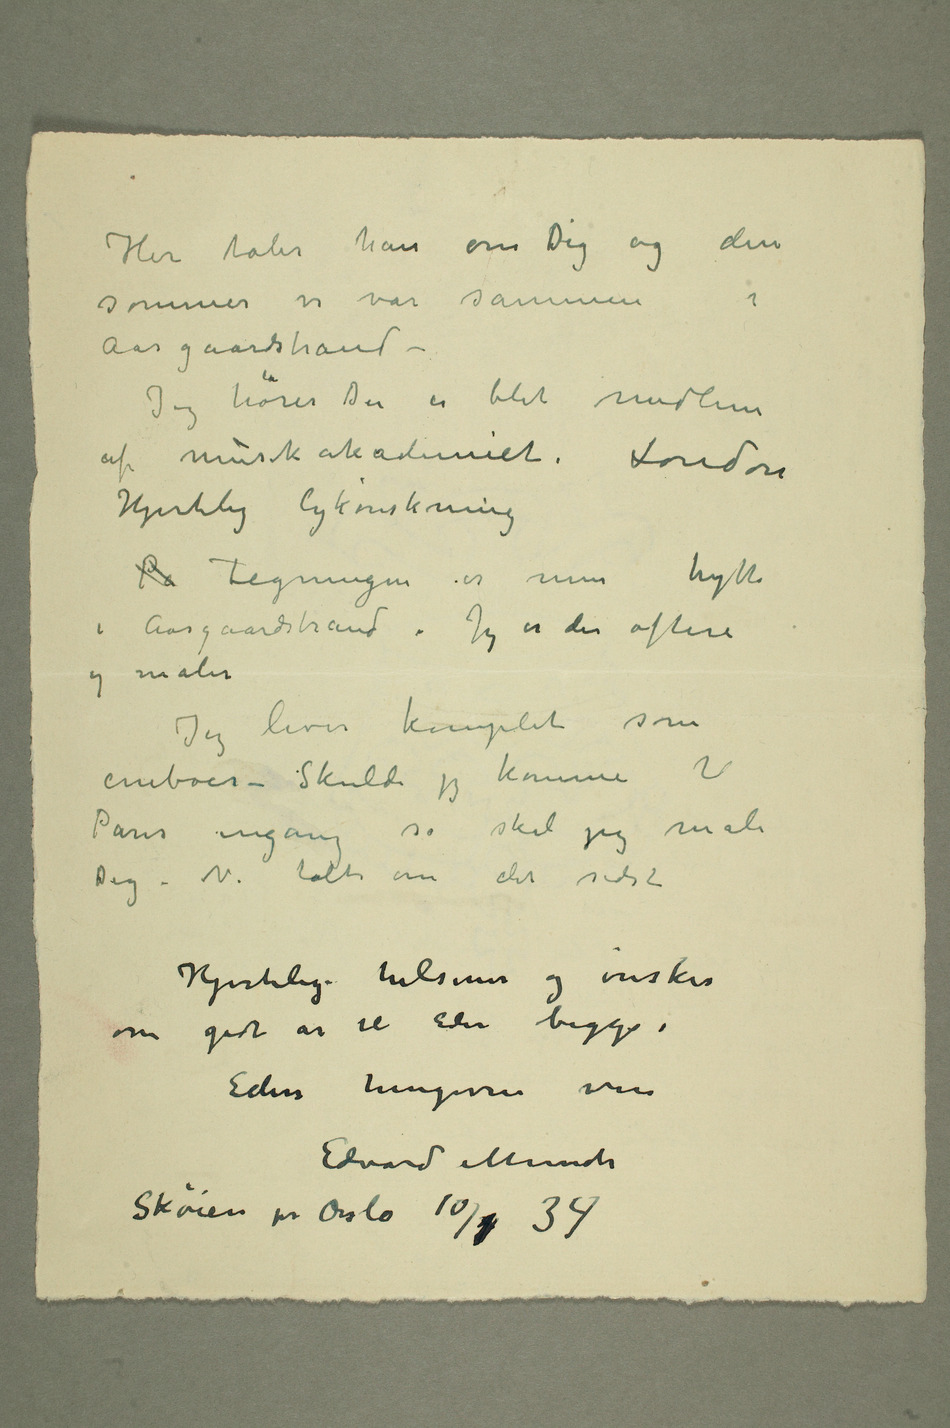 Her taler han om Dig og den
sommer vi var sammen i
Aasgaardstrand –
Jeg hører Du er blet medlem
af musikakademiet. London
Hjertelig lykønskning
På Tegningen er min hytte
i Aasgaardstrand. Jeg er der oftere
og maler
Jeg lever komplet som
eneboer – Skulde jeg komme til
Paris engang så skal jeg male
Dig – Vi talte om det sidst
Hjertelige hilsener og ønsker
om godt år til Eder begge.
Eders hengivne ven
Edvard Munch
Skøien pr Oslo 10/1 34